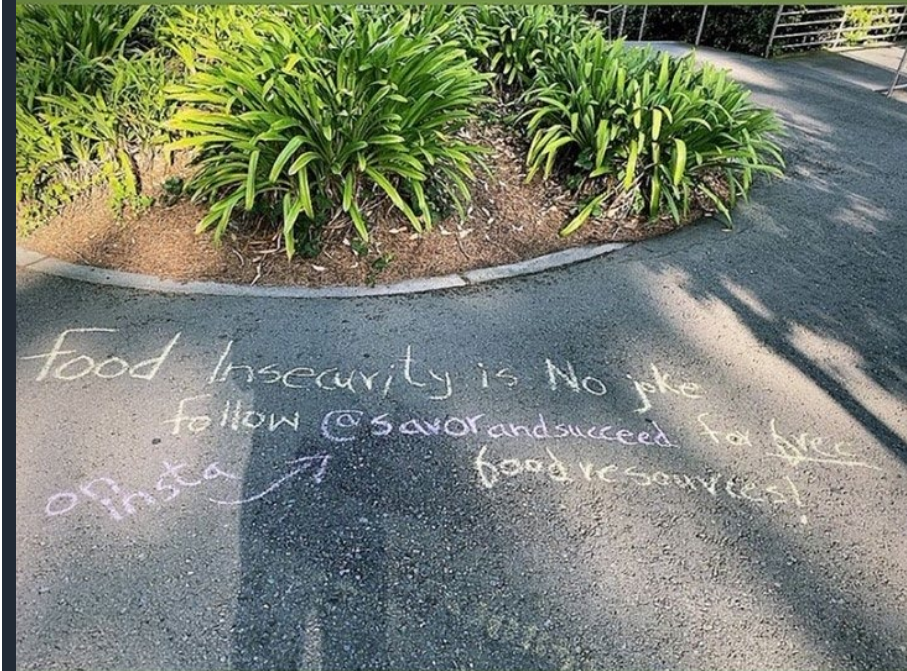 Food Insecurity is No joke
follow @savorandsucceed for free
on insta
food resources!